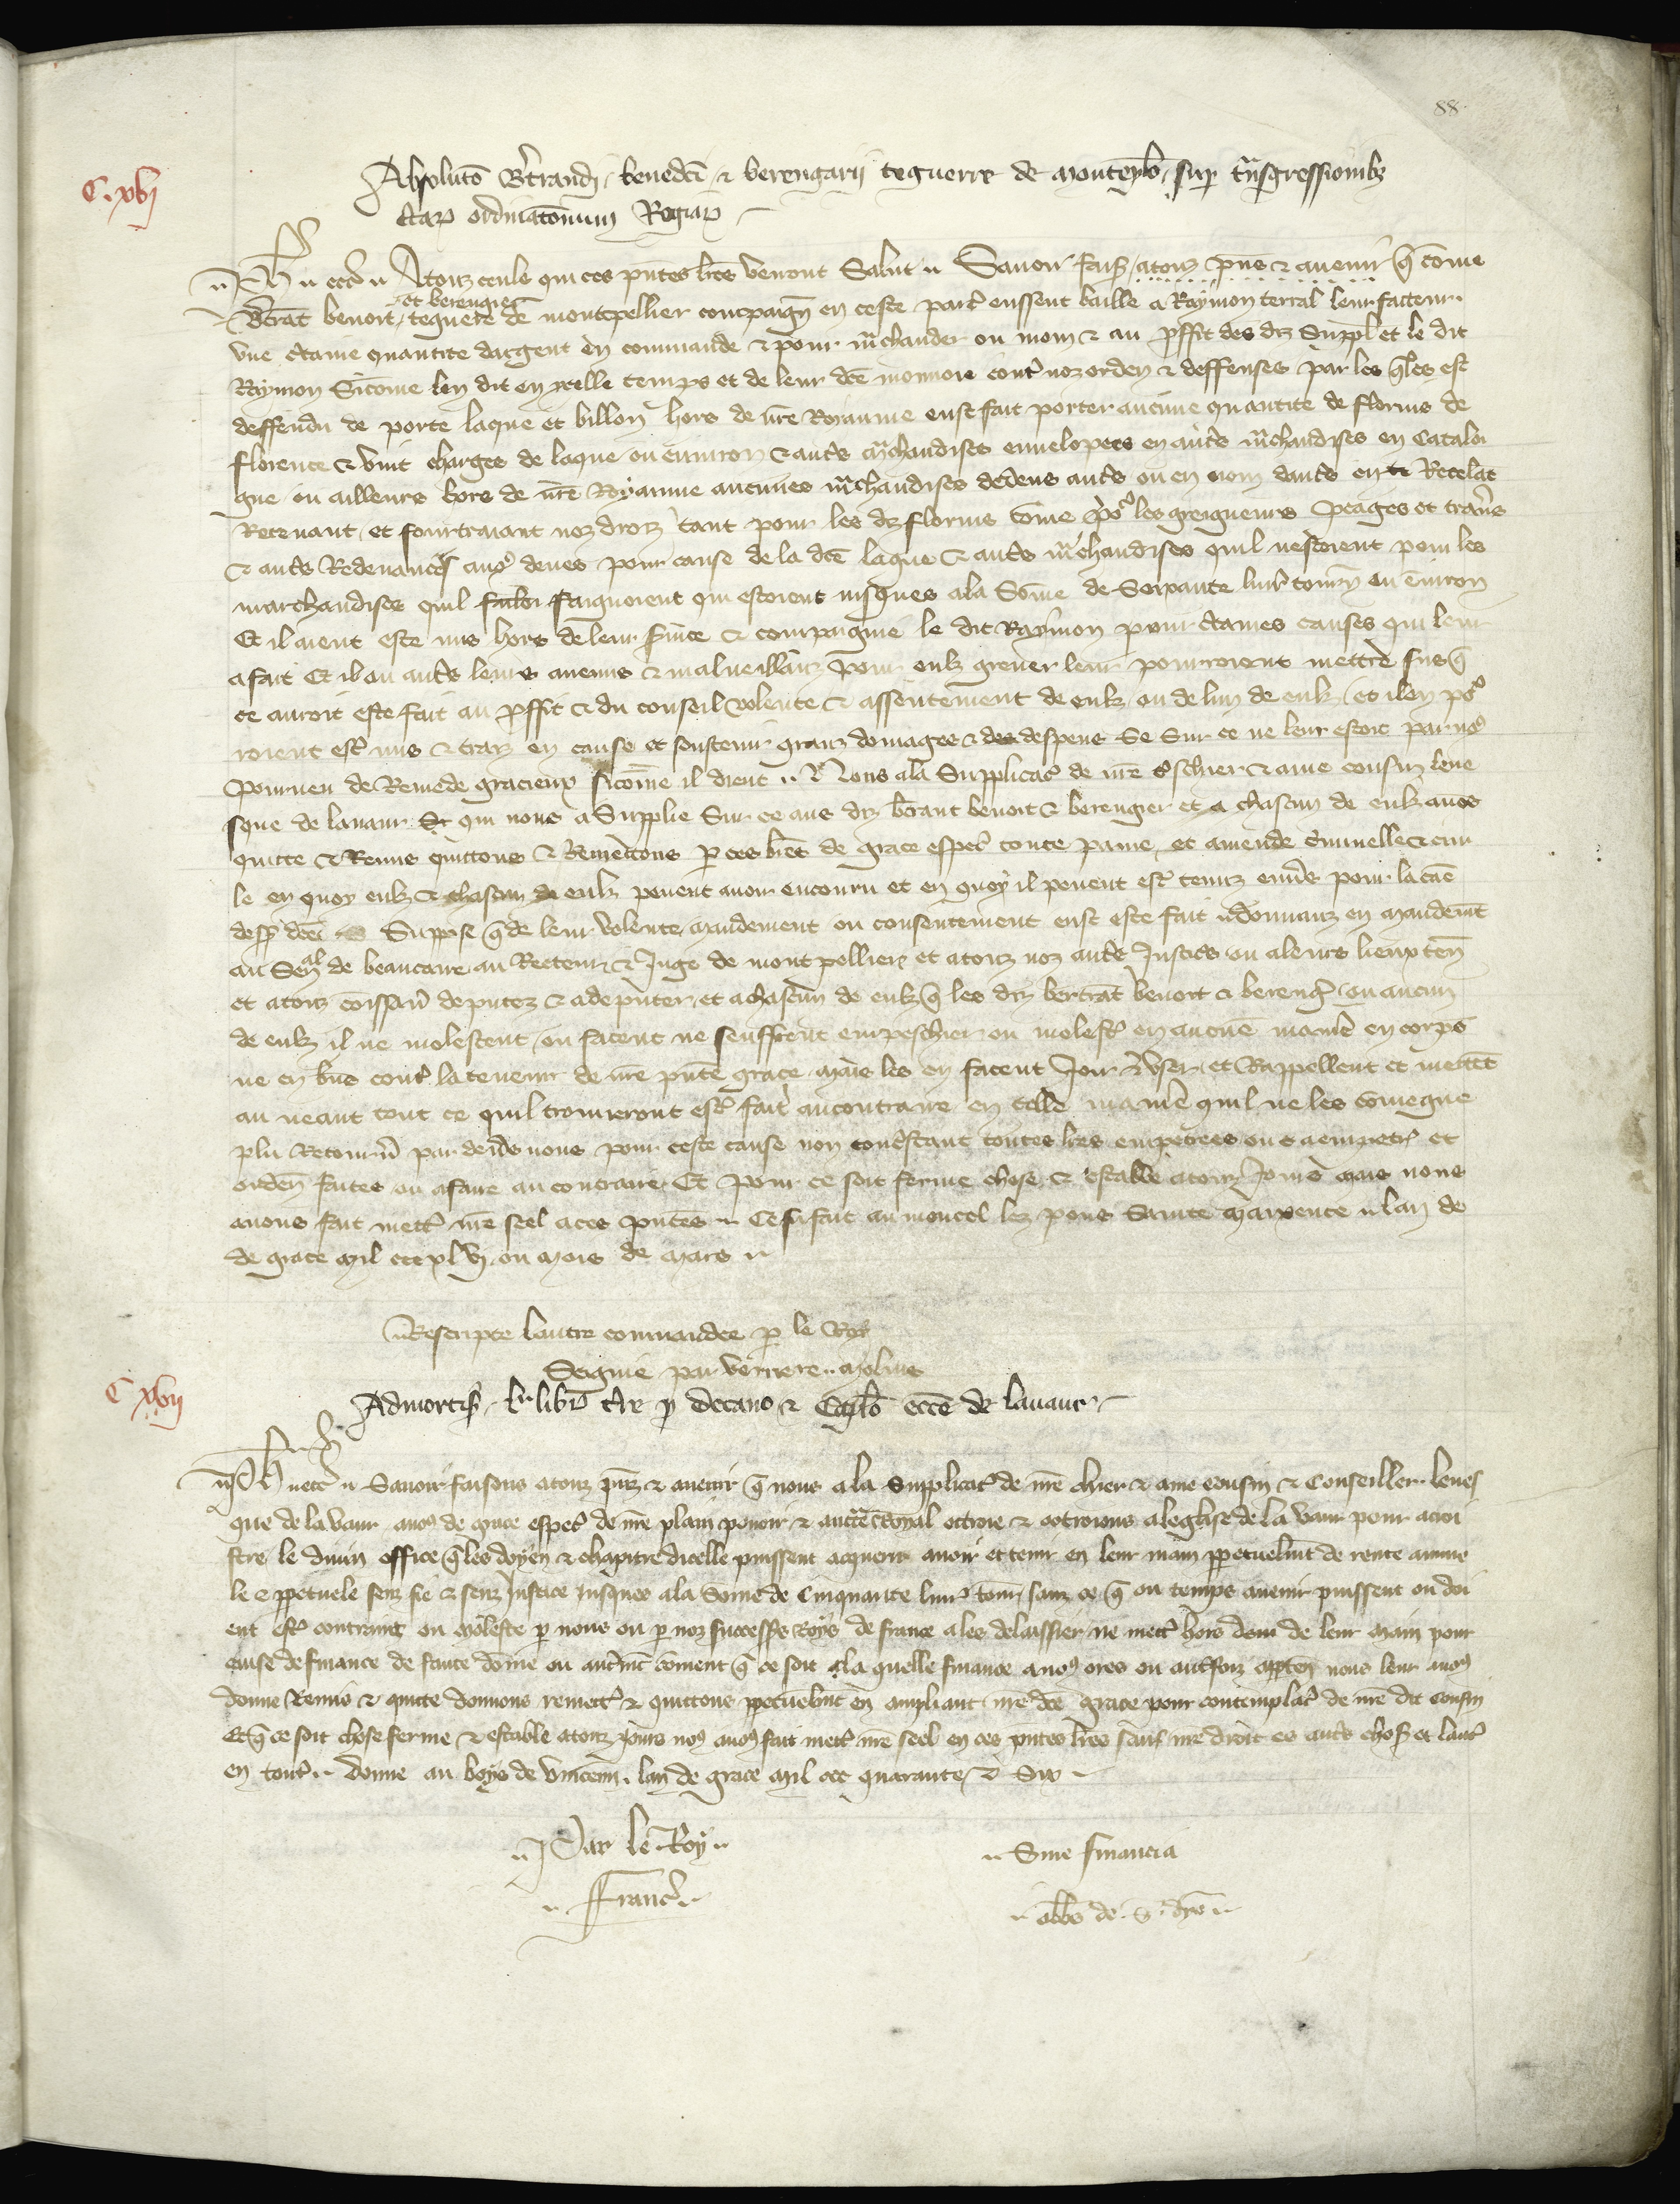 88
C. xvj
Absoluto Bertrandi, benedci & berengarii teguerre de montepl̃o, sup tñsgressionibz
c̃tarꝝ ordinatõnum Regiarꝝ
Ph ecc̃ Atouz ceuls qui ces p̃ntes lr̃es verront Salut Savoir fais̃ / atouz p̃ns & avenir q̃ cõme
Bt̃rat benoit et berengier teguere de montpellier compaig̃n en ceste part̃ eussent baille a Raymon terral leur facteur
une c̃taine quantite dargent en commande & pour m̃chander ou nom & au p̃ffit des dz Suppl̃ et le dit
Raymon Sicõme len dit en ycelle temps et de leur dc̃e monnoie cont̃ noz orden̄ & deffenses par les q̃les est
deffendu de porte laque et billon hors de nr̃e Royaume eust fait porter aucune quantite de florins de
florence & vint charges de laque ou environ & aut̃s m̃chandises envelopees en aut̃s m̃chandises en Cataloi
gne ou ailleurs hors de nr̃e Royaume aucunes m̃chandises dedens aut̃s ou en nom daut̃s en Recelãt
Retenant et fourtraiant noz droiz tant pour les dz florins cõme po᷒ les greigneurs peages et trav̄s
& aut̃s Redevances avo᷒ deues pour cause de la dc̃e laque & aut̃s m̃chandises quil nestoient pour les
marchandises quil faignoient qui estoient jusques ala Sõme de Soixante livr̃ tourn̄ ou ẽviron
Et il aient este mis hors de leur s̃vice & compaignie le dit Raymon pour c̃taines causes qui leur
a fait Et il ou aut̃s leurs anemis & malveillãz pour eulz grever leur pourroient mettre sus q̃
ce auroit este fait au p̃ffit & du conseil volente & assentement de eulz ou de lun de eulz / et il en po᷒
roient est̃ mis & traiz en cause et soustenir granz domages & despens Se Sur ce ne leur estoit par no᷒
Pourveu de Remede gracieux sicõme il dient Nous ala Supplicac̃ de nr̃e t̃schier & ame cousin leve
sque de lavaur qui nous a Supplie Sur ce aus dz bt̃rant benoit & berengier et a chascun de eulz avos
quitte & Remis quittons & Remettons p ces lr̃es de grace espec̃ toute paine et amende c̃iminelle & civi
le en quoy eulz & chascun de eulz pevent avoir encouru et en quoy il pevent est̃ tenuz env̄s pour la cãe
desp̃ dc̃e Suppose q̃ de leur volente mandement ou consentement eust este fait Donnanz en mandem̃t
au Sen̄al de beaucaire au Recteur & Juge de montpellier et atouz noz aut̃s Justices ou aleurs lieux ten̄
et atouz com̃issair̃ deputez & adeputer et achascun de eulz q̃ les diz bertrat benoit & bereng̃ ou aucun
de eulz il ne molestent ou facent ne seuffrent empeschier ou molest̃ en aucuñe manier̃e en corps
ne en biens cont̃ la teneur de nr̃e p̃nte grace mais les en facent Joir & user et Rappellent et mettẽt
au neant tout ce quil trouveront est̃ fait au contraire en telle maner̃e quil ne les coviegne
plu Retourn̄ par devs̃ nous pour ceste cause non cont̃stant toutes lr̃es empetrees ou a empetr̃ et
orden̄ faites ou a faire au contraire Et pour ce soit ferme chose & estable atouz Jours mais nous
avons fait mett̃ nr̃e seel a ces p̃ntes Ce fu fait au moncel lez pons Sainte maxence lan de
de grace mil ccc xlvj ou mois de mars
Rescripte lautre commandee p le Roy
Seignie par verriere molins
C xvij
Admortiz̃ Lr̃ libr̃ t̃re p decano & Capl̃o ecc̃e de lavaur
Ph ecc̃ Savoir faisons atouz p̃nz & avenir q̃ nous ala supplicac̃ de nr̃e chier & ame cousin & Conseiller leves
que de la vaur avo᷒ de grace espec̃ de nr̃e plain povoir & auct̃e Royal ottroie & ottroions aleglise de la vaur pour acroi
stre le divin office q̃ les doyen & chapitre dicelle puissent acquerir avoir et tenir en leur main ppetuelm̃t de rente annue
le e ppetuele senz fie & senz Justice Jusques ala Sõme de Cinquante livr̃ tourn̄ sanz ce q̃ ou temps avenir puissent ou doi
ent est̃ contrainz ou moleste p nous ou p noz successr̃s Roys de france a les delaissier ne mett̃ hors de leur main pour
cause de finance de faute dõme ou autr̃m̃t cõment q̃ ce soit ala quelle finance a no᷒ ores ou autr̃foiz appten̄ nous leur avo᷒
donne Remis & quitte donnons remett̃ & quittons ppetuelm̃t en ampliant nr̃e dc̃e grace pour contemplac̃ de nr̃e dit cousin
Et q̃ ce soit chose ferme & estable atouz jours no᷒ avo᷒ fait mett̃ nr̃e seel en ces p̃ntes lr̃es sauf nr̃e droit es aut̃s choses et laut̃
en tout̃ donne au boys de vincenn̄ lan de grace mil ccc quarante & Six
Par le Roy
Sine financia
Franc̃